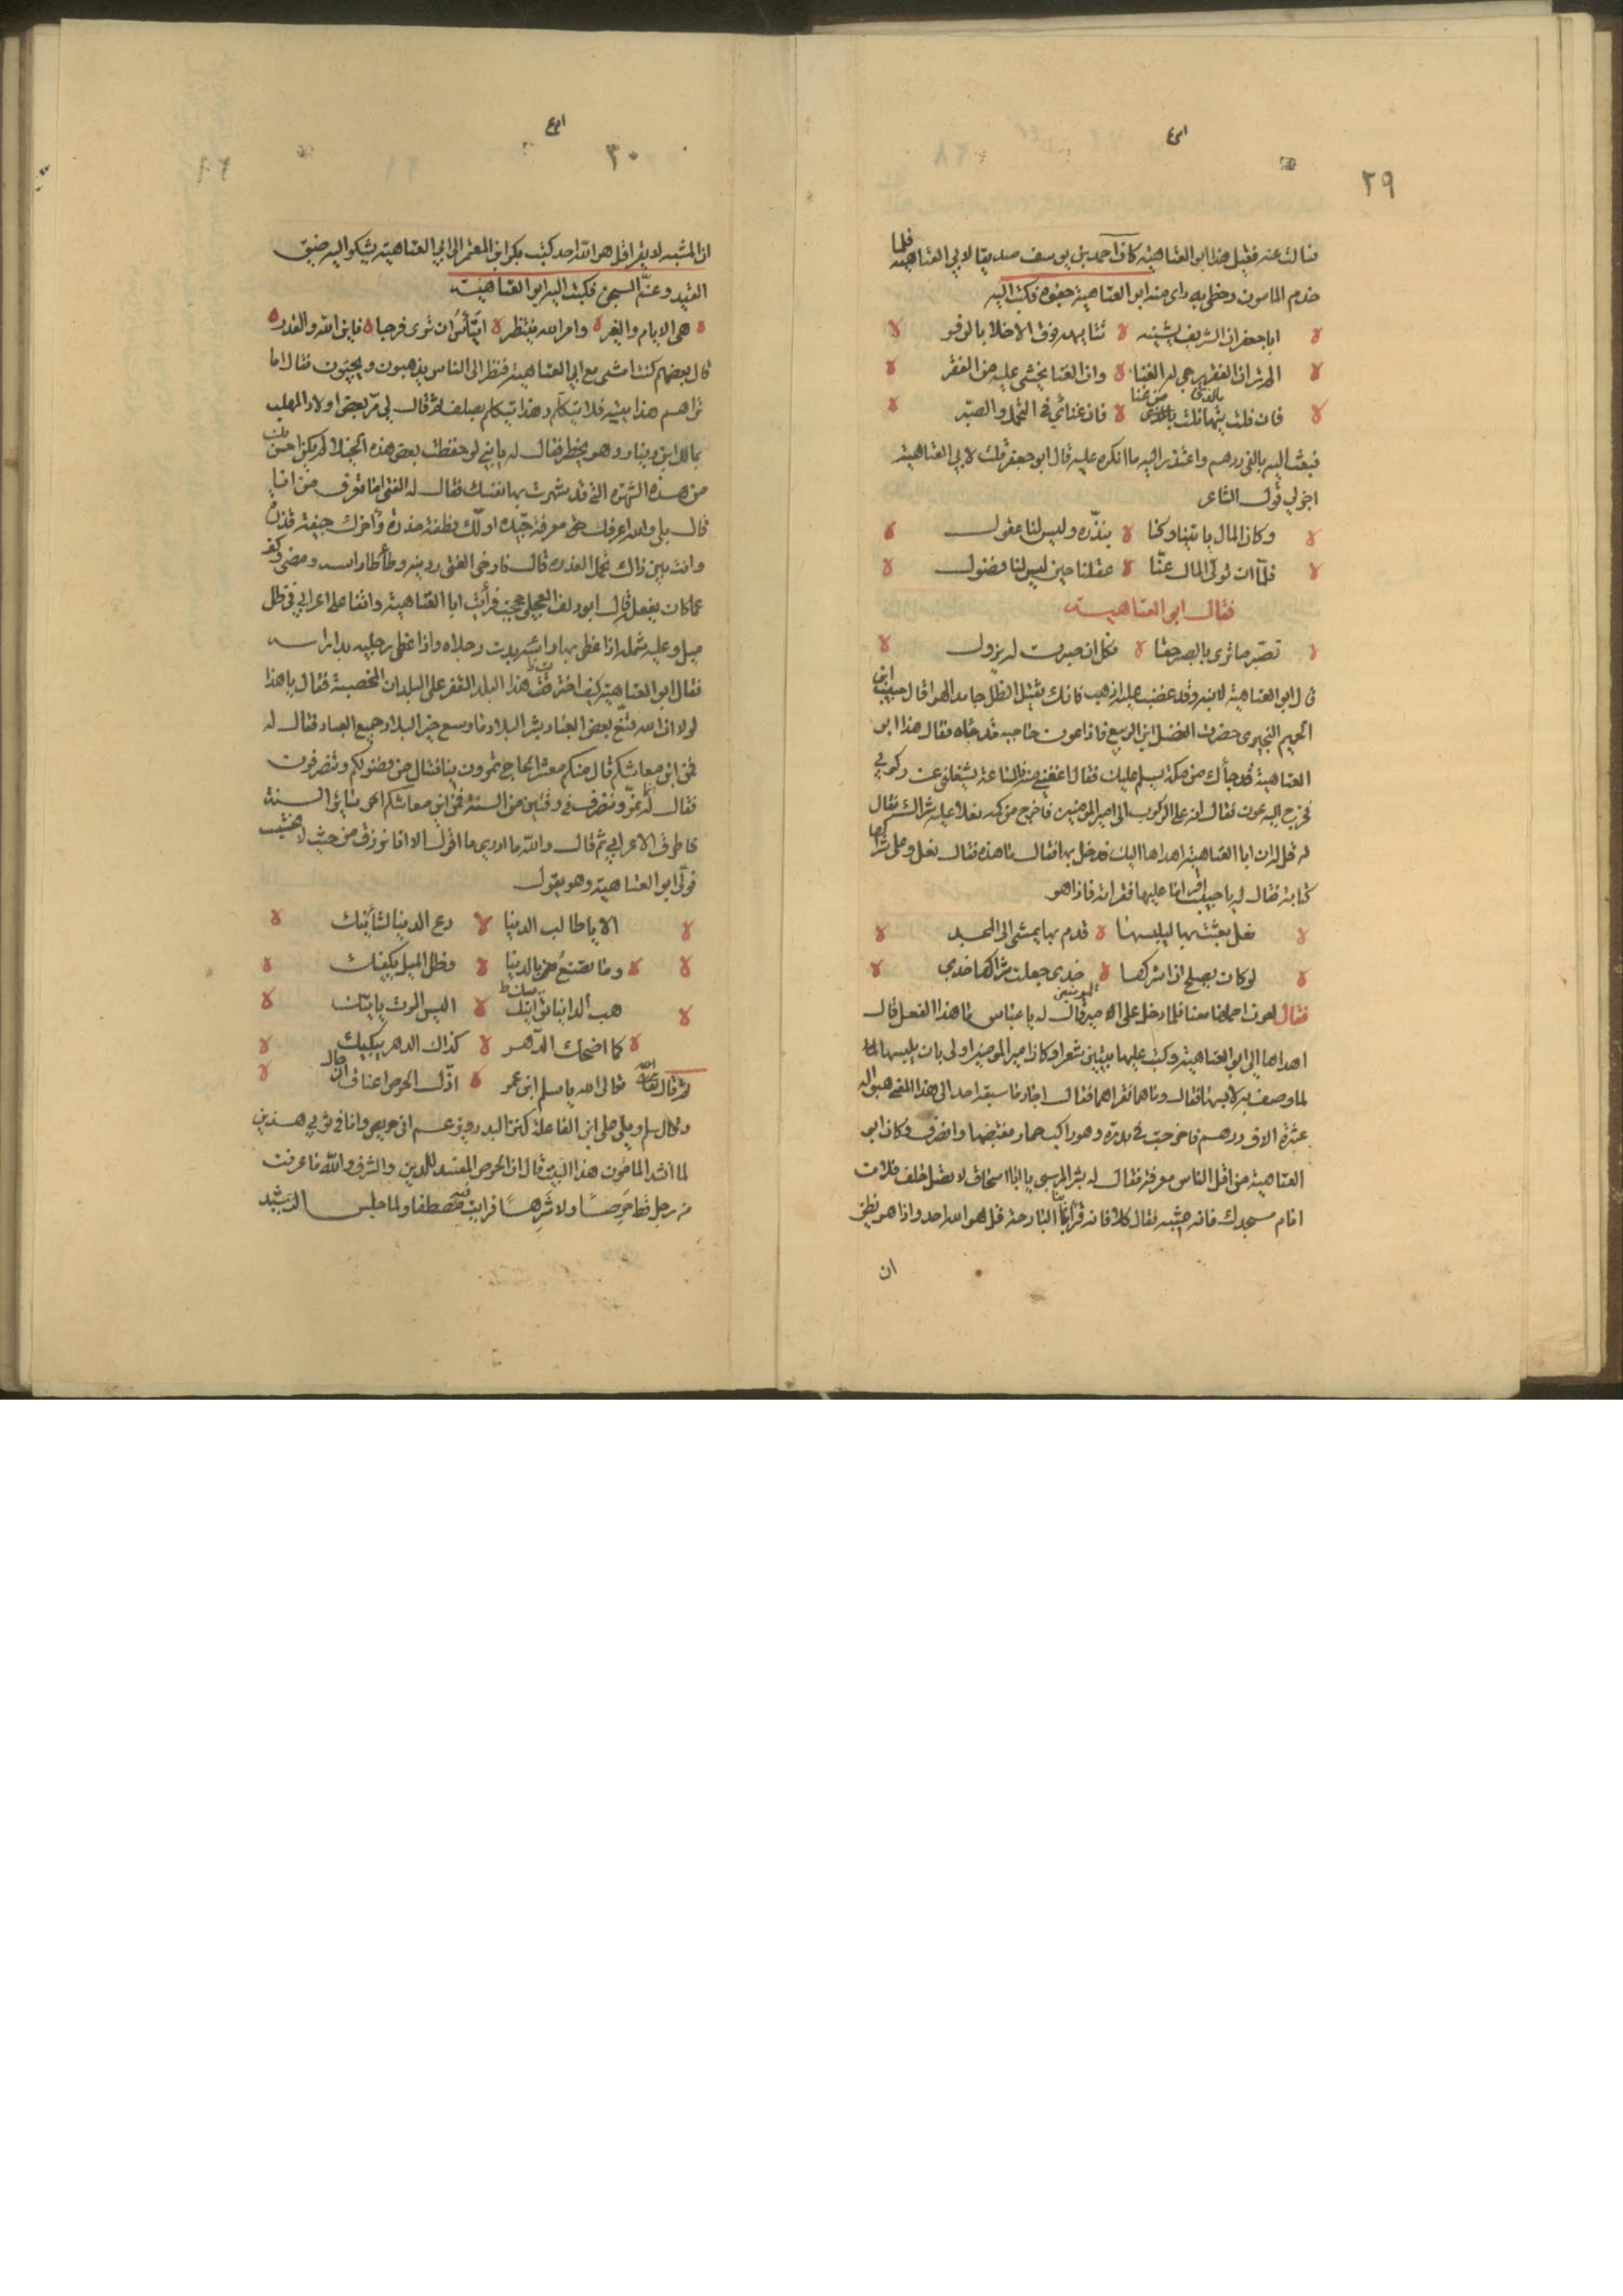 ٢٩
فسالت عنه فقيل هذا ابو العتاهية كان احمد بن يوسف صديقا لابي العتاهية فلما
خدم المامون وخطي به راى منه ابو العتاهية جفوة فكتب اليه
ابا جعفر ان الشريف يشينه تتايهه فوق الاخلا بالوفر
الم تر ان الفقر يرجى له الغنا وان الغنا يخشى عليه من الفقر
فان نلت تيها بالذى نلت من غنا فان غنائي في التجمل والصبر
فبعث اليه بالفى درهم واعتذر اليه مما انكره عليه قال ابو جعفر قلت لابي العتاهية
اجز لي قول الشاعر
وكان المال ياتينا وكنا نبذره وليس لنا عقول
فلما ان تولى المال عنا عقلنا حين ليس لنا فضول
فقال ابو العتاهية
تصبر ما ترى بالصبر حقا فكل ان صبرت له يزول
قال ابو العتاهية لابنه وقد غضب عليه اذهب فانك ثقيل الظل جامد الهوا قال حبيب ابن
الجهم النميرى حضرت الفضل ابن الربيع فاذا عون حاجبه قد جاه فقال هذا ابو
العتاهية قد جاءك من مكة يسلم عليك فقال اعفني منه الساعة يشغلني عن ركوبي
فخرج اليه عون فقال انه على الركوب الى امير المومنين فاخرج من كمه نعلا عليه شراك فقال
له قل له ان ابا العتاهية اهداها اليك فدخل بها فقال ما هذه فقال نعل وعلى شراكها
كتابة فقال لي يا حبيب اقرا ما عليها فقراته فاذا هو
نعل بعثت بها ليلبسها قدم بها يمشى الى المجد
لو كان يصلح ان اشركها خدى جعلت شراكها خدي
فقال لعون احملها معنا فلما دخل على امير المومنين قال له يا عباسي ما هذا النعل قال
اهداها الي ابو العتاهية وكتب عليها بيتين شعرا وكان امير المومنين اولى بان يلبسها
لما وصف به لابسها فقال وما هما فقراهما فقال اجاد ما سبقه احد الى هذا المعنى هبوا له
عشرة الاف درهم فاخرجت في بدرة وهو راكب حمار فقبضها وانصرف وكان ابو
العتاهية من اقل الناس معرفة فقال له بشر المريسي يا ابا اسحاق لا تصل خلف فلان
امام مسجدك فانه مشبه فقال كلا فانه قرأ بنا البارحة قل هو الله احد واذا هو يظن
ان
٣٠
ان المشبه لا يقرا قل هو الله احد كتب بكر ابن المعتمر الى ابي العتاهية يشكو اليه ضيق
القيد وغم السجن فكتب اليه ابو العتاهية
هى الايام والغير وامر الله ينتظر اتيأس ان ترى فرجا فاين الله والقدر
قال بعضهم كنت امشى مع ابي العتاهية فنظر الى الناس يذهبون ويجيون فقال اما
تراهم هذا يتيه فلا يتكلم وهذا يتكلم بصلف ثم قال لي مر بعض اولاد المهلب
بمالك ابن دينار وهو يخطر فقال له يا بني لو خفضت بعض هذه الخيلا الم يكن احسن بك
من هذه الشهرة التى قد شهرت بها نفسك فقال له الفتى اما تعرف من انا
قال بلى والله اعرفك حق معرفة جيدة اولك نطفة مذرة وآخرك جيفة قذرة
وانت بين ذاك تحمل العذرة قال فارخى الفتى ردنيه وطأطأ راسه ومضى وكف
عما كان يفعل قال ابو دلف العجلي حججت فرأيت ابا العتاهية واقفا على اعرابي في ظل
ميل وعليه شملة اذا غطى بها راسه بدت رجلاه واذا غطى رجليه بدا راسه
فقال ابو العتاهية كيف اخترت هذا البلد القفر على البلدان المخصبة فقال يا هذا
لولا ان الله قنع بعض العباد بشر البلاد ما وسع خير البلاد جميع العباد فقال له
فمن اين معاشكم قال منكم معشر الحاج تمرون بنا فننال من فضولكم وتنصرفون
فقال له انما نمر وننصرف فى وقتين من السنة فمن اين معاشكم سائر السنة
فاطرق الاعرابي ثم قال والله ما ادري ما اقول الا انا نرزق من حيث لا نحتسب
فولى ابو العتاهية وهو يقول
الا يا طالب الدنيا دع الدنيا لشأنيك
وما تصنع بالدنيا وظل الميل يكفيك
هب الدنيا تواتيك اليس الموت ياتيك
كما اضحك الدهر كذاك الدهر يبكيك
ثم قال تعالى الله يا سلم ابن عمر اذل الحرص اعناق الرجال
وقال سلم ويلي على ابن الفاعلة كنز البدر ويزعم اني حريص وانا في ثوبي هذين
لما انشد المامون هذا البيت قال ان الحرص المفسد للدين والشرف والله ما عرفت
من رجل قط حرصا ولا شرها فرايت فيه مصطفا ولما جلس الرشيد